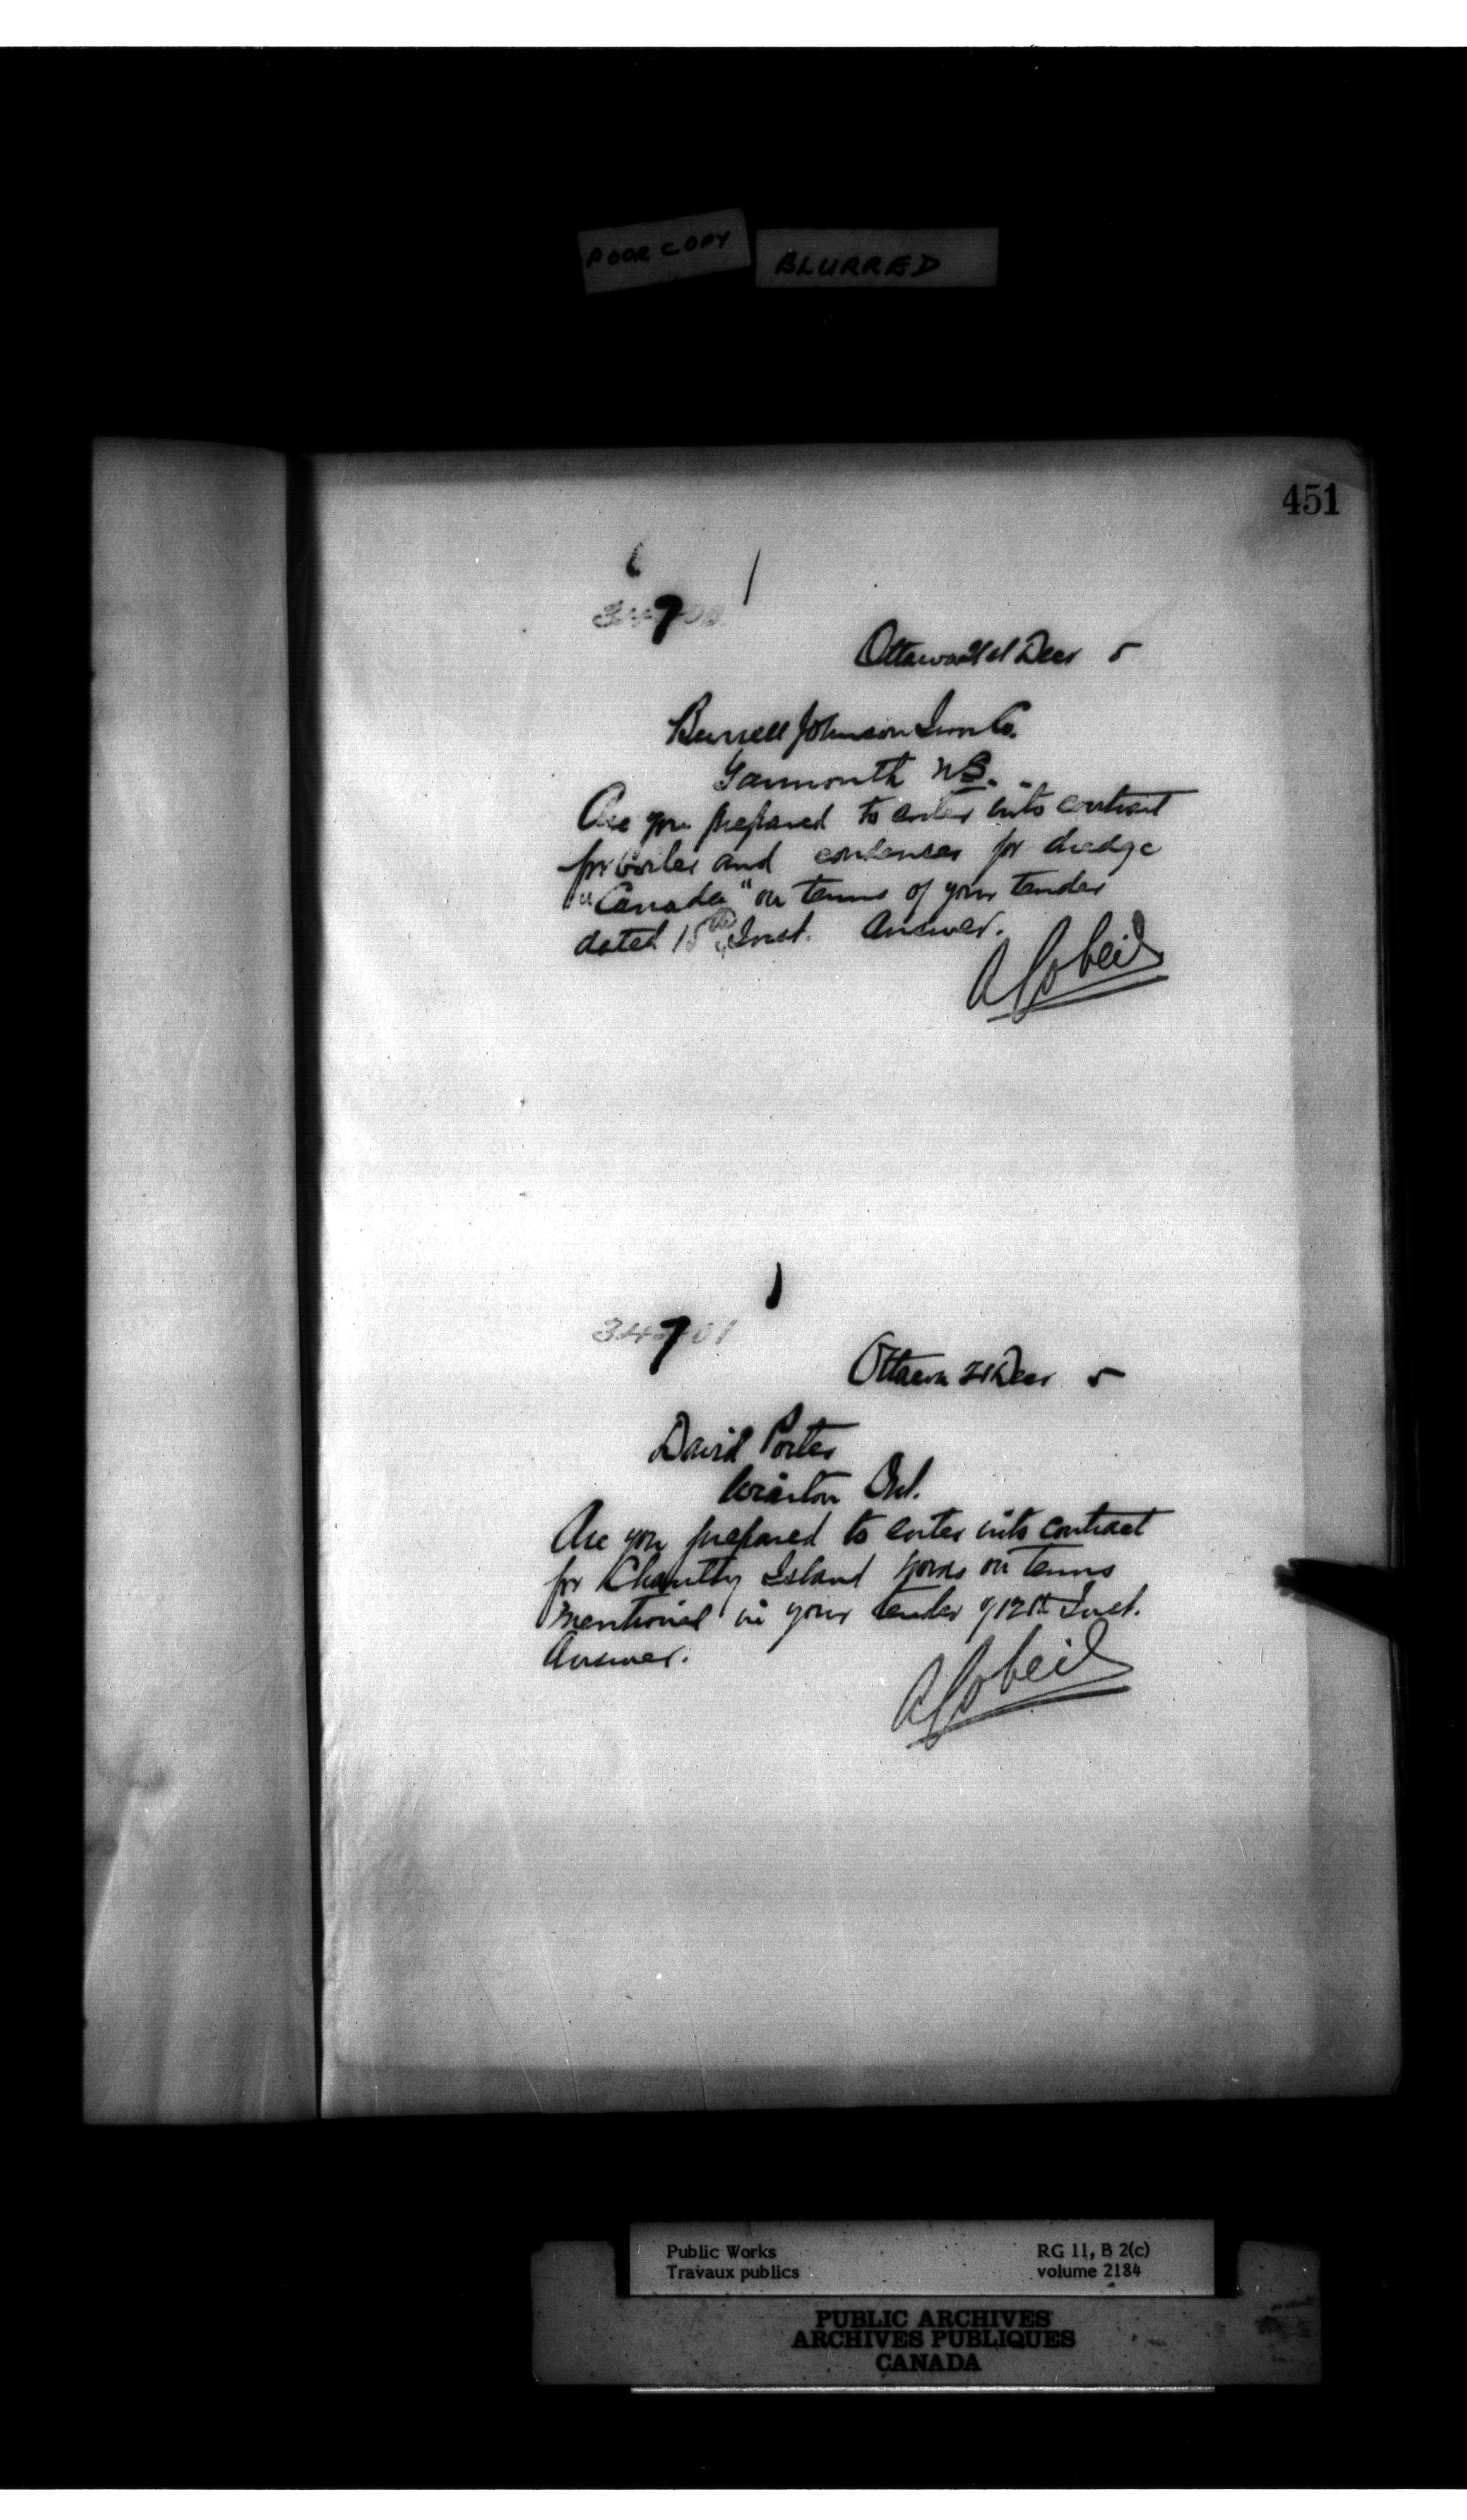 POOR COPY
BLURRED
451
7
Ottawa 21st Decr 5
Burrell Johnson Iron Co.
Yarmouth NS.
Are you prepared to enter into contract
for boiler and condenser for dredge
"Canada" on terms of your tender
dated 15th Inst. Answer.
A Gobeil
7
Ottawa 21 Decr 5
David Porter
Wiarton Ont.
Are you prepared to enter into contract
for Chantry Island works on terms
mentioned in your tender of 12th Inst.
Answer.
A Gobeil
Public Works
Travaux publics
RG 11, B 2(c)
volume 2184
PUBLIC ARCHIVES
ARCHIVES PUBLIQUES
CANADA